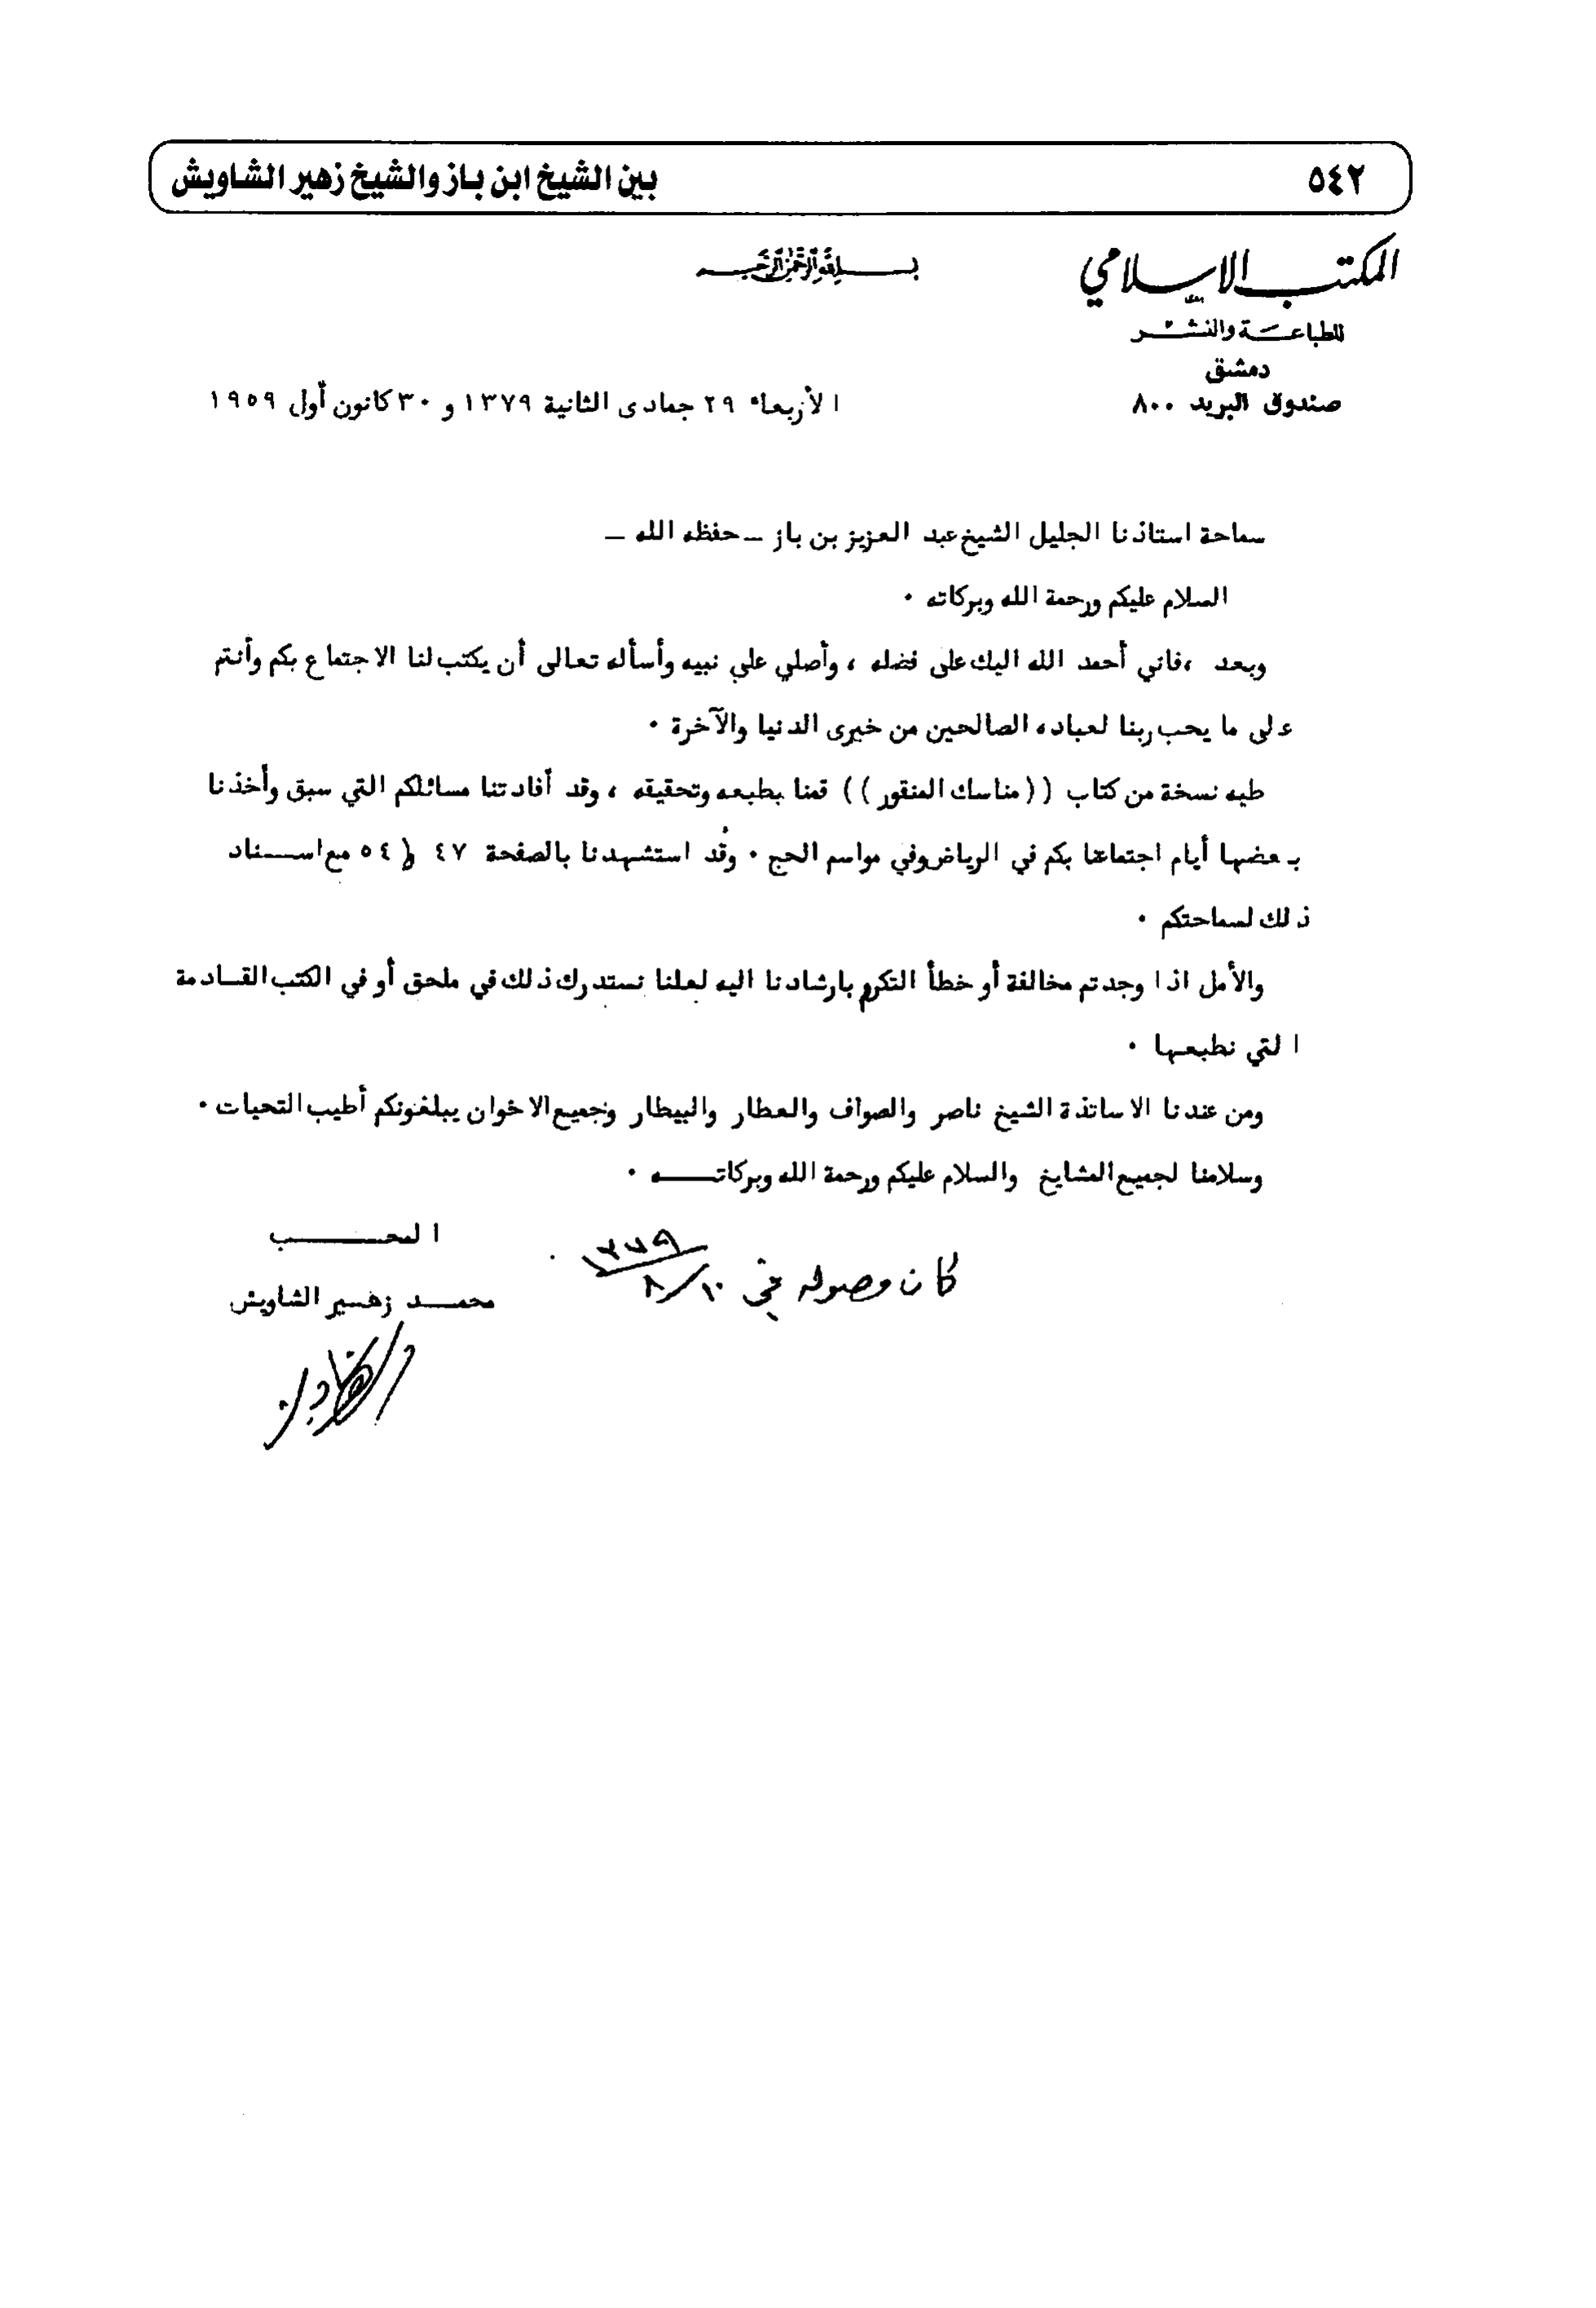 ٥٤٢
بين الشيخ ابن باز والشيخ زهير الشاويش
بسم الله الرحمن الرحيم
المكتب الإسلامي
للطباعة والنشر
دمشق
صندوق البريد ٨٠٠
الأربعاء ٢٩ جمادى الثانية ١٣٧٩ و ٣٠ كانون أول ١٩٥٩
سماحة استاذنا الجليل الشيخ عبد العزيز بن باز – حفظه الله –
السلام عليكم ورحمة الله وبركاته .
وبعد ، فاني أحمد الله اليك على فضله ، وأصلي علي نبيه وأسأله تعالى أن يكتب لنا الاجتماع بكم وأنتم
على ما يحب ربنا لعباده الصالحين من خيرى الدنيا والآخرة .
طيه نسخة من كتاب ((مناسك المنقور)) قمنا بطبعه وتحقيقه ، وقد أفادتنا مسائلكم التي سبق وأخذنا
بعضها أيام اجتماعنا بكم في الرياض وفي مواسم الحج . وقد استشهدنا بالصفحة ٤٧ و ٥٤ مع اسـناد
ذلك لسماحتكم .
والأمل اذا وجدتم مخالفة أو خطأ التكرم بارشادنا اليه لعلنا نستدرك ذلك في ملحق أو في الكتب القـادمة
التي نطبعها .
ومن عندنا الاساتذة الشيخ ناصر والصواف والعطار والبيطار وجميع الاخوان يبلغونكم أطيب التحيات .
وسلامنا لجميع المشايخ والسلام عليكم ورحمة الله وبركاتـــه .
المحــــب
كان وصوله في ١٠/٨ ١٣٧٩
محمـــد زهـير الشاويش